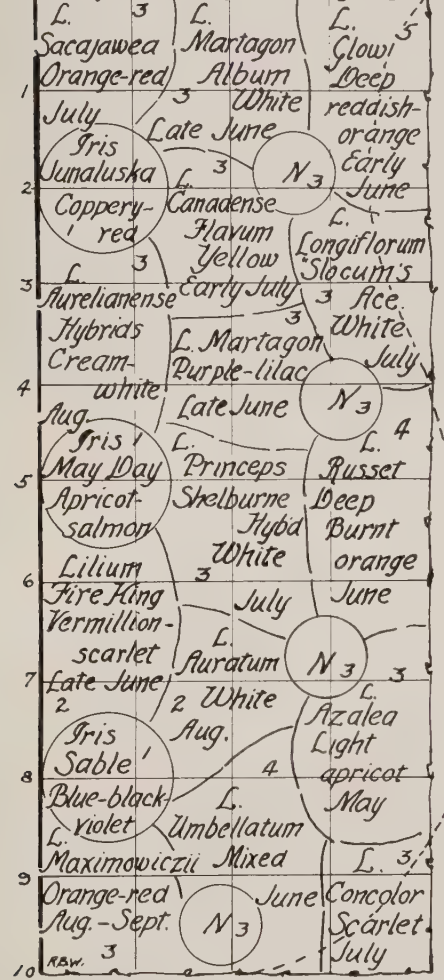 3
L.
Sacajawea
Orange-red
July
L.
Martagon
Album
White
3
Late June
L.
5
Glow
Deep
reddish-
orange
Early
June
1
Iris
Junaluska
Coppery-
red
1
3
N 3
2
L.
Canadense
Flavum
Yellow
Early July
3
L.
Longiflorum
"Slocum's
Ace
White
July
3
3
L.
Aurelianense
Hybrids
Cream-
white
Aug.
3
L. Martagon
Purple-lilac
Late June
N 3
4
Iris 1
May Day
Apricot-
salmon
L.
Princeps
Shelburne
Hyb'd
White
3
July
4
L.
Russet
Deep
Burnt
orange
June
5
Lilium
Fire King
Vermillion-
scarlet
Late June
2
6
L.
Auratum
2 White
Aug.
N 3
3
L.
Azalea
Light
apricot
May
7
Iris
Sable 1
Blue-black-
violet
8
4
L.
Umbellatum
Mixed
June
L.
Maximowiczii
Orange-red
Aug.-Sept.
3
9
N 3
L. 3
Concolor
Scarlet
July
10
R.B.W.